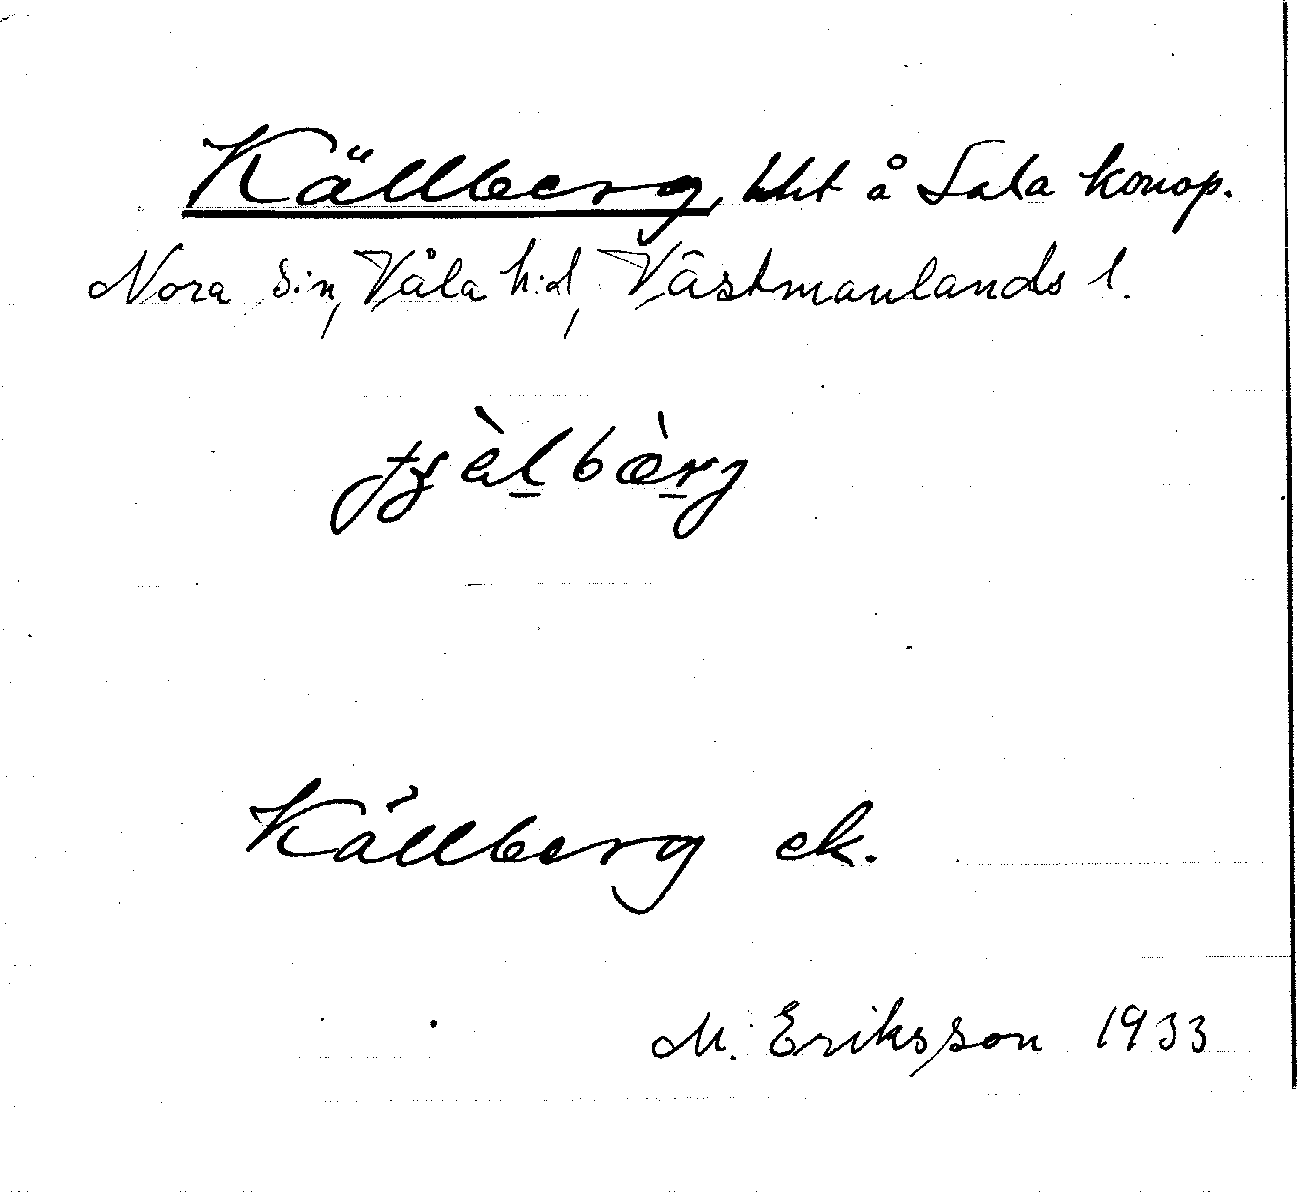 Källberg, tht å Sala konop.
Nora s:n, Våla h:d, Västmanlands l.
Källberg ek.
M. Eriksson 1933